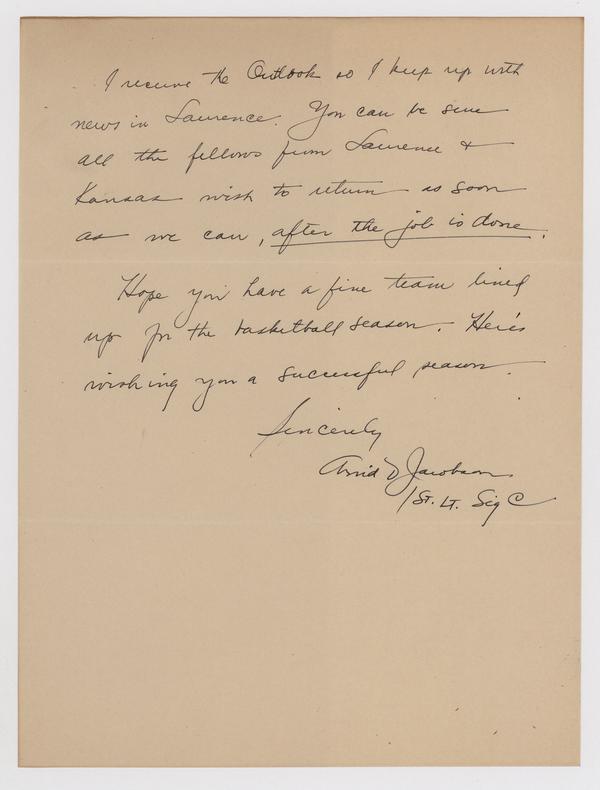 I receive the Outlook so I keep up with
news in Lawrence. You can be sure
all the fellows from Lawrence &
Kansas wish to return as soon
as we can, after the job is done.
Hope you have a fine team lined
up for the basketball season. Here's
wishing you a successful season.
Sincerely
Arnid D Jacobson
1st. Lt. Sig C